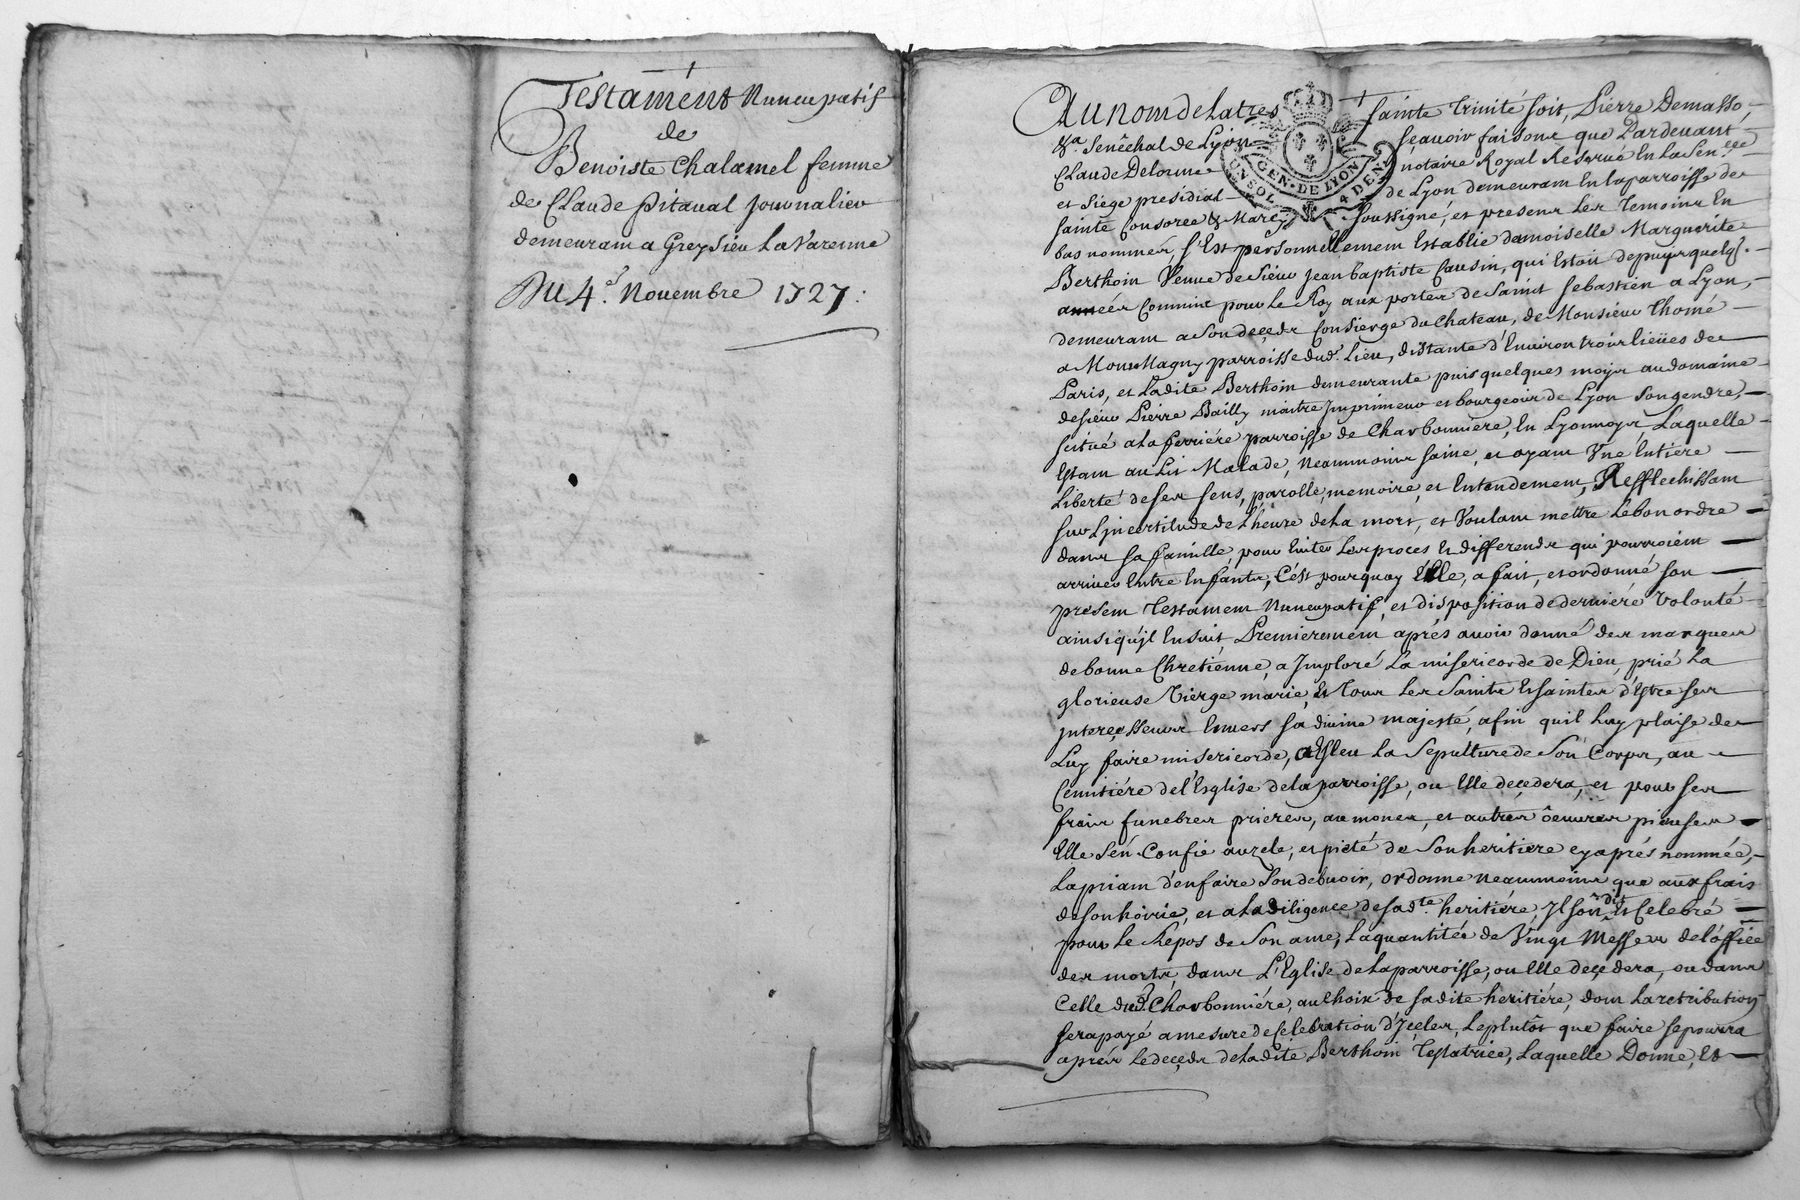 Testament Nuncupatif
de
Benoiste Chalamel femme
de Claude Pitaval Journalier
demeurant a Greysieu La Varenne
Du 4.e Novembre 1727.
Au nom de la tres sainte Trinité soit, Pierre Demasso,
&a. Senêchal de Lyon sçavoir faisons que Pardevant
Claude Delorme notaire Royal Reservé En La Sen.ée
et siege presidial de Lyon demeurant En la parroisse de
sainte Consorce & Marcy soussigné, et presens Les Temoins En
bas nommes, s'Est personnellement Establie damoiselle Marguerite
Berthoin Veuve de sieur Jean baptiste Cousin, qui Estoit depuys quelq.
années Commis pour Le Roy aux portes de Saint Sebastien a Lyon,
demeurant a son deçeds Consierge du Chateau, de Monsieur Thomé
a Mont Magny parroisse dud. Lieu, distante d'Environ trois lieües de
Paris, et Ladite Berthoin demeurante puis quelques moys au domaine
de sieur Pierre Bailly maitre Jmprimeur et bourgeois de Lyon son gendre,
scitué a La ferriére parroisse de Charbonniére, En Lyonnoys, Laquelle
Estant au Lit Malade, neanmoins saine, et ayant Une Entiere
Liberté de ses sens, parolle, memoire, et Entendement, Refflechissant
sur L'jncertitude de L'heure de La mort, et Voulant mettre Le bon ordre
dans sa famille pour Eviter Les procès Et differends qui pourroient
arriver Entre Enfants, C'ést pourquoy Elle, a fait, et ordonné son
present Testament Nuncupatif, et disposition de derniére volonté
ainsi qu'jl Ensuit, Premierement aprés avoir donné des marques
de bonne Chretienne, a Jmploré La misericorde de Dieu, prié La
glorieuse Vierge marie, Et Tous Les Saints Et saintes d'Estre ses
jnterçesseurs Envers sa divine majesté, afin qu'il Luy plaise de
Luy faire misericorde, a Esleu La Sepulture de Son Corps, au
Cemitiére de l'Esglise de la parroisse, ou Elle deçedera, et pour ses
frais funebres prieres, aumones, et autres ôeuvres pieuses
Elle s'én Confie au zele, et pieté de Son heritiere cy aprés nommée,
La priant d'en faire Son debvoir, ordonne neanmoins que aux frais
de son hoirie, et a La diligence de sad.te heritiére, Jl soit dit Et Celebré
pour Le Repos de Son ame, La quantitée de Vingt Messes de l'óffice
des morts, dans L'Eglise de La parroisse, ou Elle deçedera, ou dans
Celle dud. Charbonniére, au choix de sadite heritiére, dont La retribution
sera payé a mesure de Celebration d'Jçelles, Le plutôt que faire se pourra
aprés Le deçeds de Ladite Berthoin Testatrice, Laquelle Donne, Et
GEN. DE LYON
4 DEN.